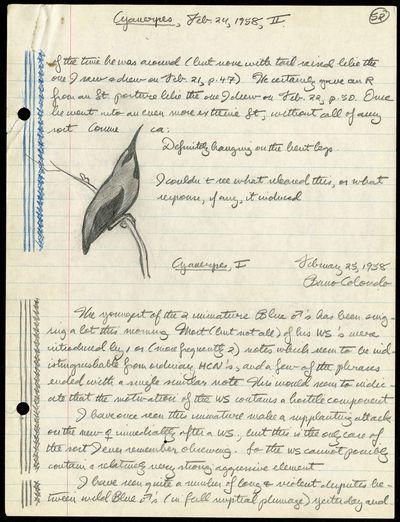 Cyanerpes, Feb. 24, 1958, II
52
of the time he was around (but none with tail raised like the
one I saw & drew on Feb. 21, p. 47). He certainly gave an R
from an St. posture like the one I drew on Feb. 22, p. 50. Once
he went into an even more extreme St, without call of any
sort
ca:
Definitely hanging on the bent legs.
I couldn't see what released this, or what
response, if any, it induced
Cyanerpes, I
February 25, 1958
Barro Colorado
The youngest of the 2 miniature Blue ♂'s has been sing-
ing a lot this morning. Most (but not all) of his WS's were
introduced by 1 or (more frequently 2) notes which seem to be ind-
istinguishable from ordinary HCN's, and a few of the phrases
ended with a single similar note. This would seem to indic-
ate that the motivation of the WS contains a hostile component
I have once seen this miniature make a supplanting attack
on the new ♀ immediately after a WS, but this is the only case of
the sort I even remember observing. So the WS cannot possibly
contain a relatively very strong aggressive element
I have seen quite a number of long & violent disputes be-
tween wild Blue ♂'s (in full nuptial plumage) yesterday and